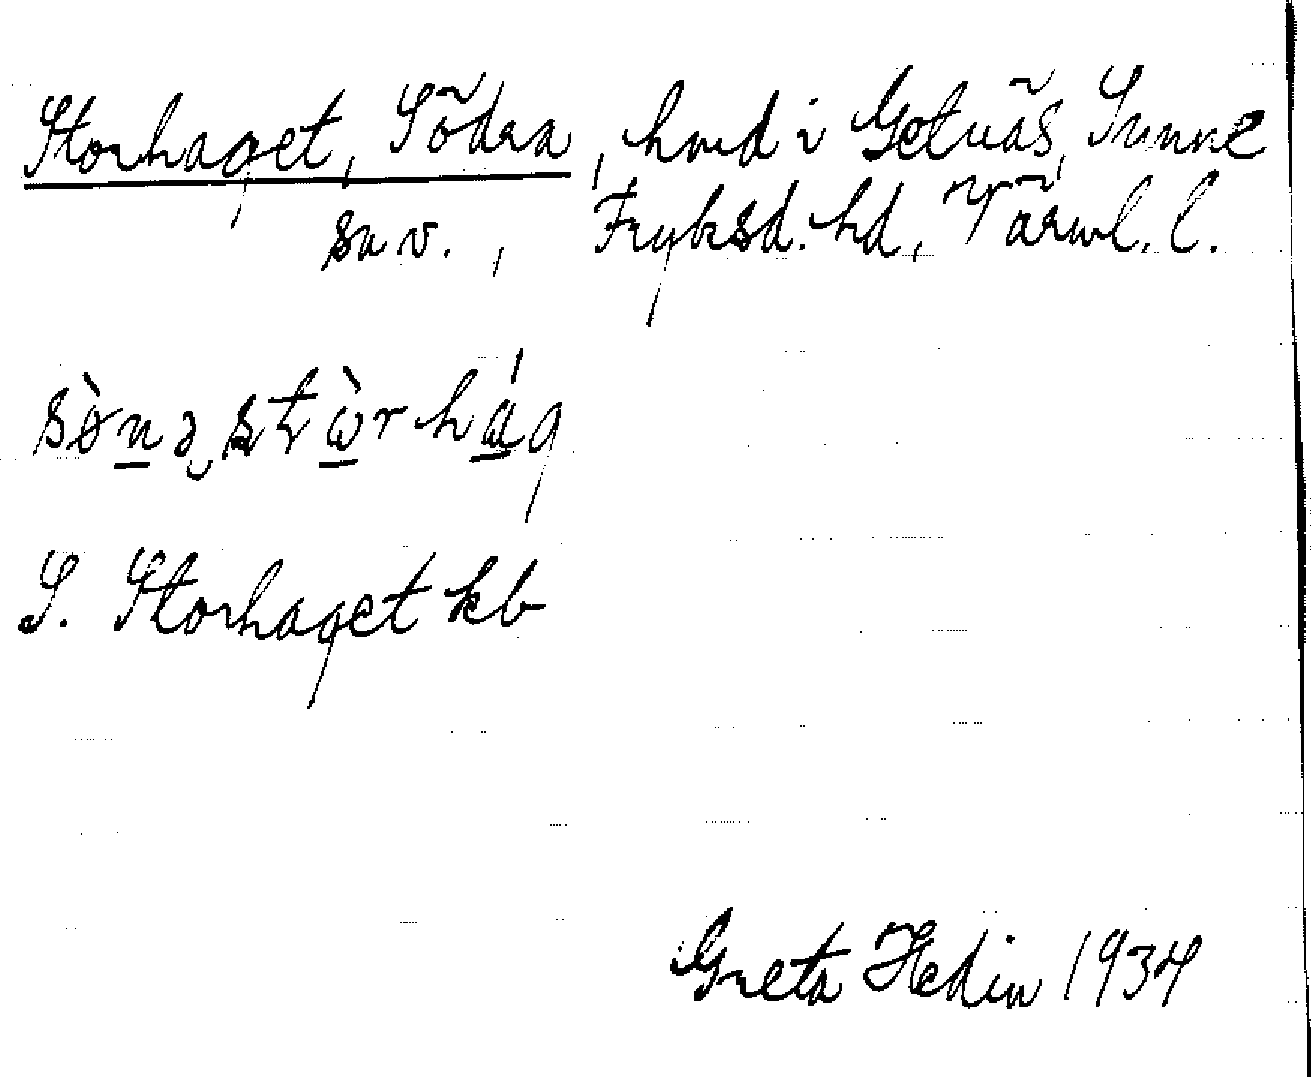 Storhaget, Södra, hmd i Getnäs, Sunne
sn v., Fryksd. hd, Värml. l.
S. Storhaget kb
Greta Hedin 1934